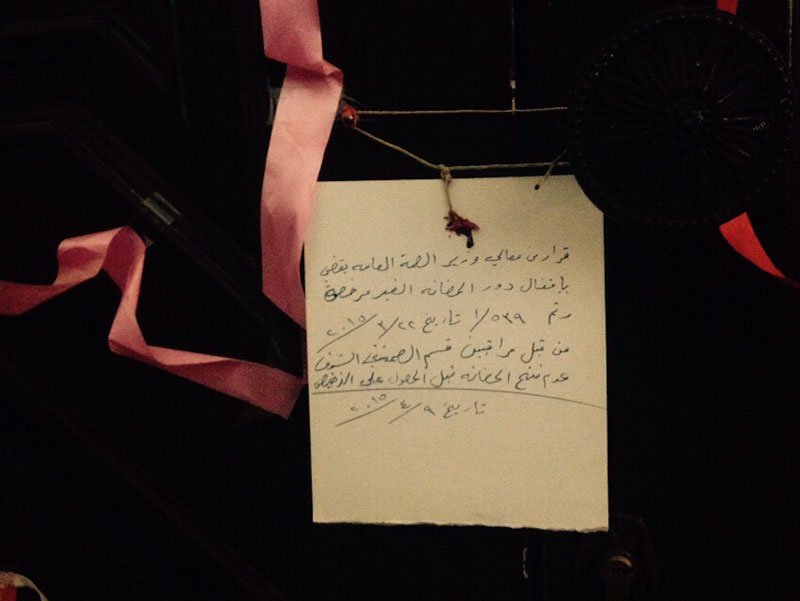 قرار من معالي وزير الصحة العامه يقضي
بإقفال دور الحضانه الغير مرخصة
رقم ١/٥٣٩ تاريخ ٢٢/٣/٢٠١٥
من قبل مراقبين قسم الصحة في الشوف
عدم فتح الحضانه قبل الحصول على الترخيص
تاريخ ٩/٤/٢٠١٥